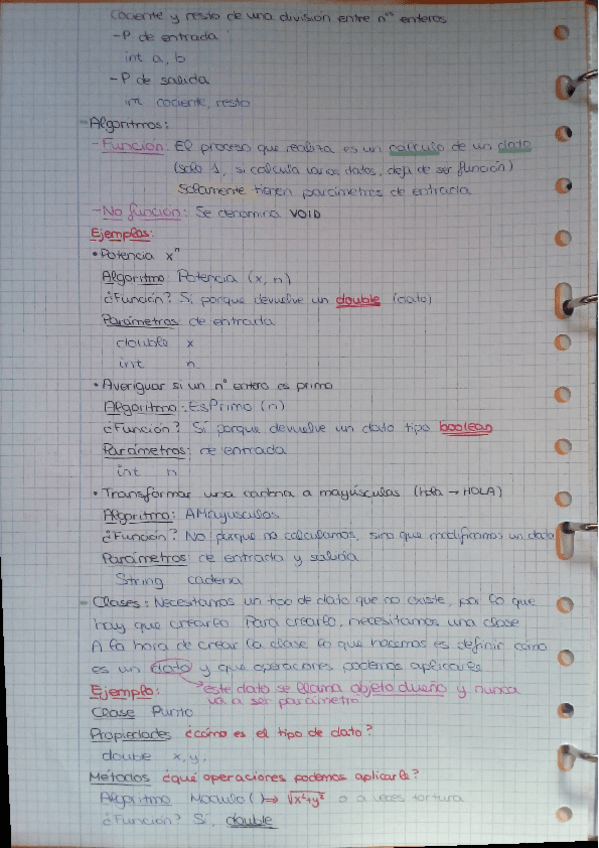 Cociente y resto de una división entre nos enteros
-P de entrada
int a, b
-P de salida
int cociente, resto
-Algoritmos:
-Función: El proceso que realiza es un calculo de un dato
(sólo 1, si calcula varios datos, deja de ser función)
Solamente tienen parámetros de entrada
-No función: Se denomina VOID
Ejemplos:
• Potencia xⁿ
Algoritmo: Potencia (x, n)
¿Función? Sí porque devuelve un double (dato)
Parámetros de entrada
double x
int n
• Averiguar si un nº entero es primo
Algoritmo: EsPrimo (n)
¿Función? Sí porque devuelve un dato tipo boolean
Parámetros: de entrada
int n
• Transformar una cadena a mayúsculas (Hola → HOLA)
Algoritmo: AMayusculas
¿Función? No porque no calculamos, sino que modificamos un dato
Parámetros de entrada y salida
String cadena
- Clases: Necesitamos un tipo de dato que no existe, por lo que
hay que crearlo. Para crearlo, necesitamos una clase
A la hora de crear la clase lo que hacemos es definir cómo
es un dato y que operaciones podemos aplicarles
Ejemplo: este dato se llama objeto dueño y nunca
va a ser parámetro
Clase Punto
Propiedades ¿cómo es el tipo de dato?
double x, y;
Métodos ¿qué operaciones podemos aplicarle?
Algoritmo Modulo() → √x²+y² o a veces
¿Función? Sí, double